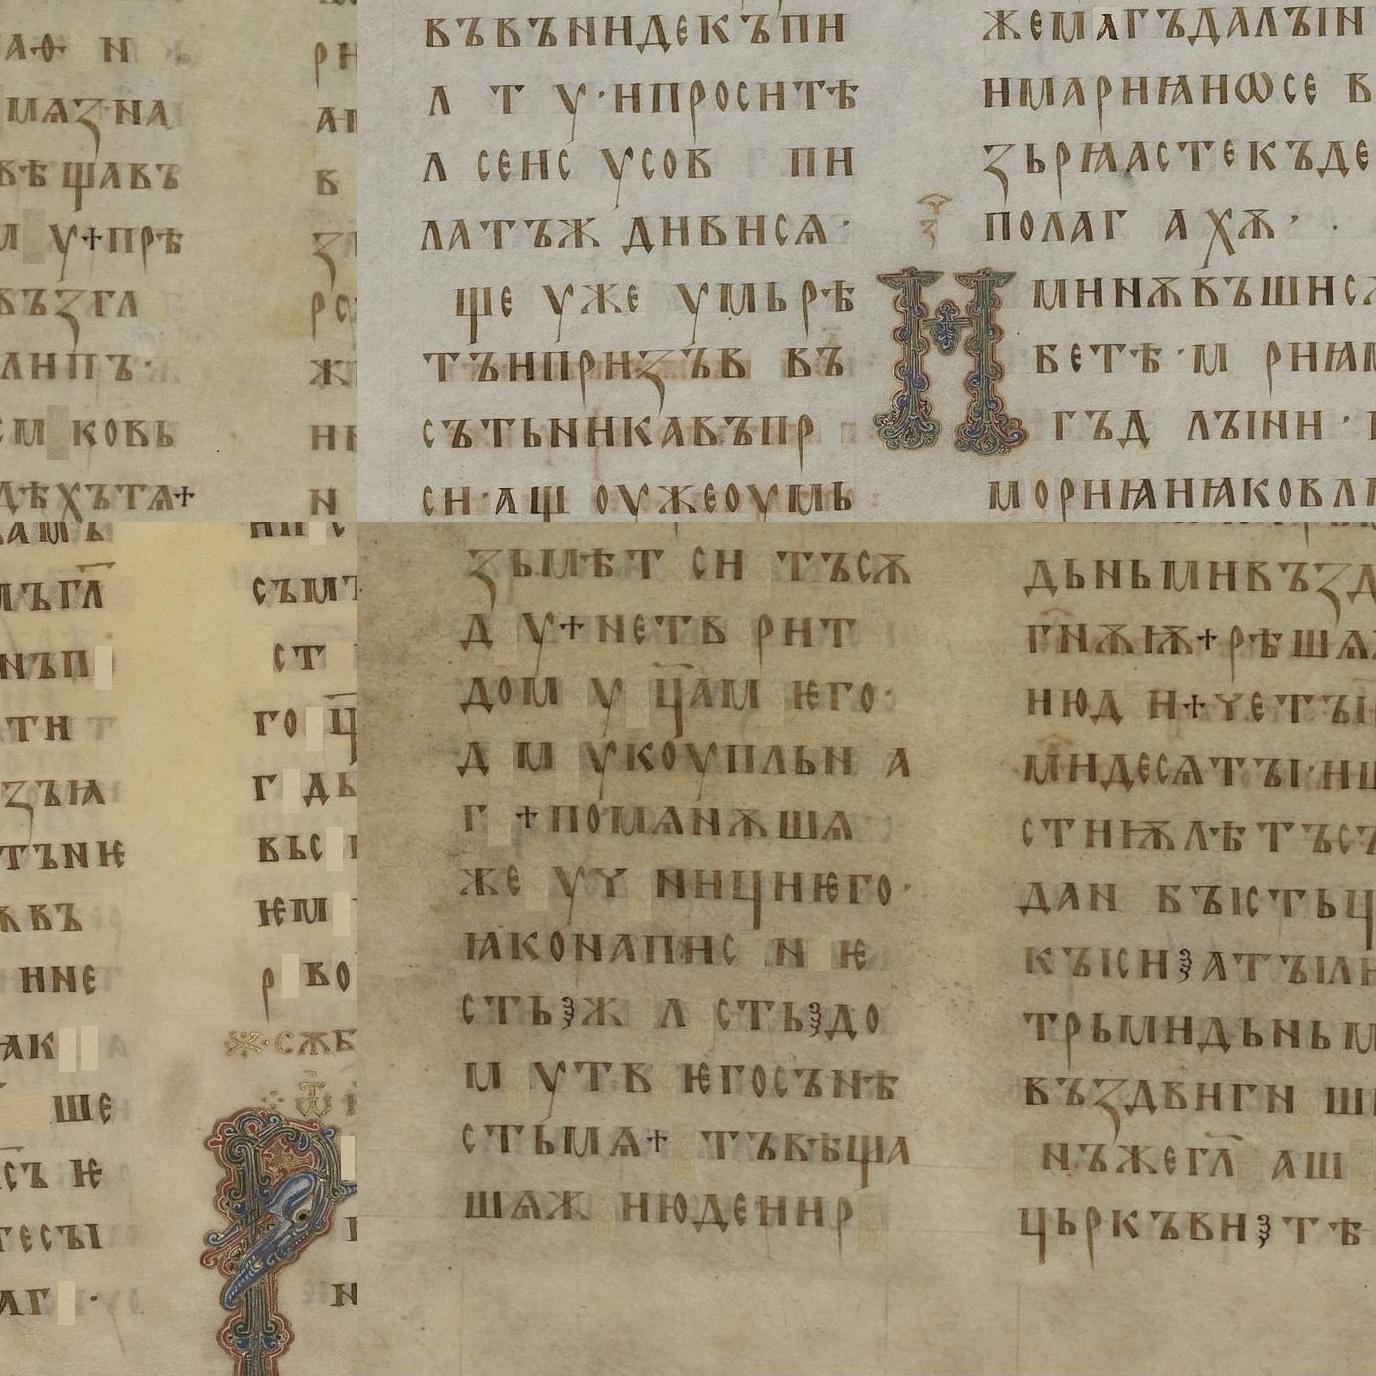 аѳ н
мѧзна
вѣщавъ
л у+прѣ
възгла
лнпъ·
см ковь
дѣхътѧ+
рн
ап
в
зг
рс
ж
нк
н
въвъннндекъпн
л т у·нпроснтѣ
л сенс усов пн
латъж днвнсѧ·
ще уже умьрѣ
тънпрнзъв въ
сътьннкавъпр
сн·ащ оужеоумь
жемагъдалъін
нмарнꙗнѡсе в
зърꙗастекъде
полаг ахѫ·
мннѫвъшнсѧ
бетѣ·м рнꙗм
гъд лъінн·
морнꙗнꙗковл
амъ
мъгл҃
нъп
тн т
зъꙗ
тънѥ
къ
нне
ак а
ше
съ ѥ
тесъі
аг ·
нп с
съмъ
ст
го ц҃
г дь
вьс
ѥм
р во
сѫб
ѿ
н
зьмѣт сн тъсѫ
д у+нетв рнт
дом у ц҃ам ѥго·
д м укоупльн а
г +помѧнѫшѧ
же уꙋ ннцнѥго·
ꙗконапнс н ѥ
стьꙁж л стьꙁдо
м утв ѥгосънѣ
стьмѧ+ тъвѣща
шѧж нюденнр
дьньмнвъзд
гнѫѭ+рѣшѧ
нюд н+ꙋетъі
мндесѧтъі·нш
стнѭлѣтъсъ
дан бъістьц
къіснꙁатъілн
трьмндьньм
въздвнгн ш
нъжегл҃ аш
црькъвнꙁтѣ